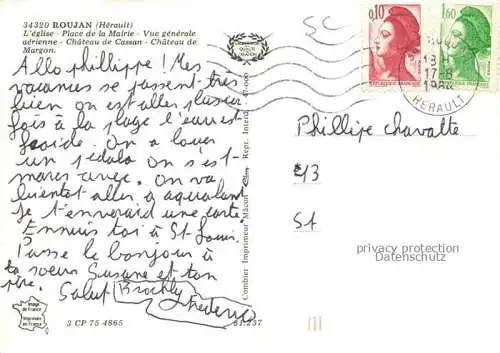 34320 ROUJAN (Hérault)
L'église - Place de la Mairie - Vue générale
aérienne - Château de Cassan - Château de
Margon.
Allo phillippe! Mes
vacances se passent très
bien on est aller plusieur
fois à la plage l'eau est
froide. On a louer
un pédalo on s'est
marer avec. On va
bientet aller a aqualand
Je t'enverai une carte
Ennuis toi à St Louis.
Passe le bonjour à
ta soeur Susane et ton
père. Salut Brochly
Frederic
Image
de France
Imprimée
en France
3 CP 75 4865
51.237
Combier Imprimeur Mâcon
Repr. Interd.
SC
0,10
RÉPUBLIQUE FRANÇAISE
1,60
18 H
17-8
HERAULT
Phillipe Chavatte
43
St
privacy protection
Datenschutz